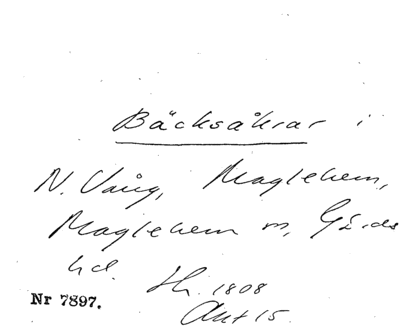 Bäcksåkrar i
N. Vång, Maglehem,
Maglehem sn, Gärds
hd. 1808
Akt 15.
Nr 7897.